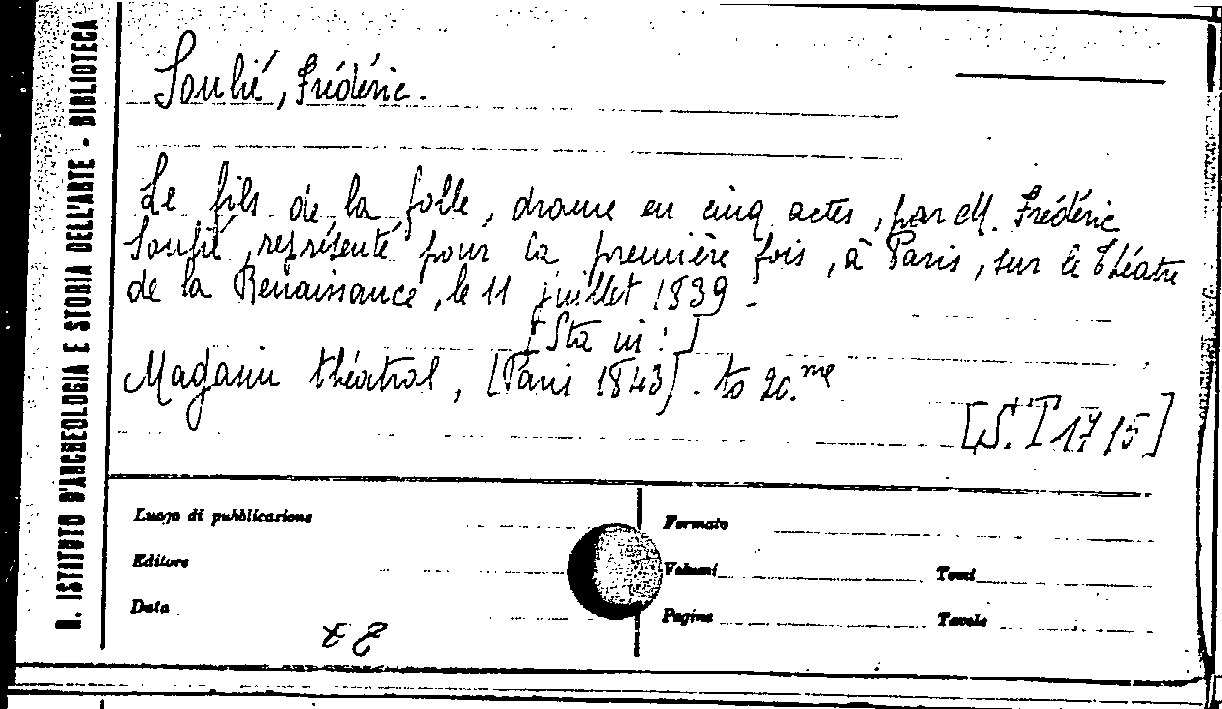 R. ISTITUTO D'ARCHEOLOGIA E STORIA DELL'ARTE - BIBLIOTECA
Soulié, Frédéric.
Le fils de la folle, drame en cinq actes, par M. Frédéric
Soulié, représenté pour la première fois, à Paris, sur le Théatre
de la Renaissance, le 11 juillet 1839 -
[Sta in:]
Magasin théatral, [Paris 1843]. to 20.me
[S.T 17 15]
Luogo di pubblicazione
Formato
Editore
Volumi
Tomi
Data
Pagine
Tavole